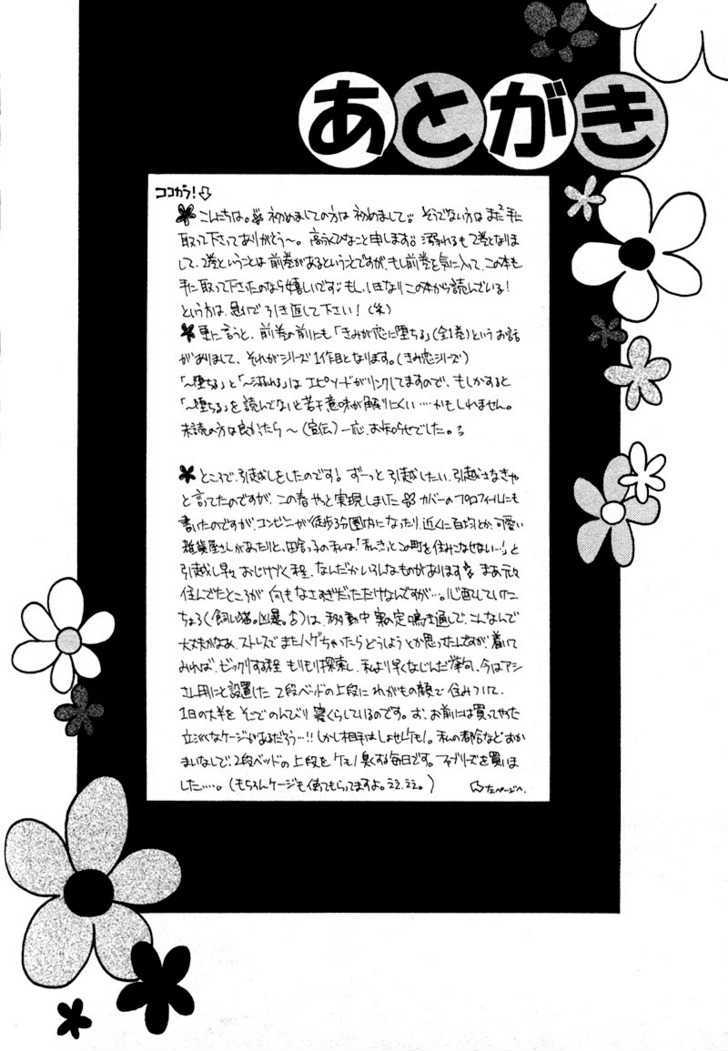 あとがき
ココから!
こんにちは。初めましての方は初めまして。そうでない方はまたまた手に
取って下さってありがとう〜。高永ひなこと申します。溺れるも2巻となりま
して、2巻ということは前巻があるということですが、もし前巻を気に入って、この本も
手に取って下さったのなら嬉しいです。もし、いきなりこの本から読んでいる!
という方は、急いで引き返して下さい!(笑)
更に言うと、前巻の前にも「きみが恋に堕ちる」(全1巻)というお話
がありまして、それがシリーズ1作目となります。(きみ恋シリーズ)
「〜堕ちる」と「〜溺れる」はエピソードがリンクしてますので、もしかすると
「〜堕ちる」を読んでないと若干意味が解りにくい‥‥かもしれません。
未読の方は良かったら〜(宣伝)一応、お知らせでした。
ところで、引越しをしたのです!ずーっと引越したい、引越さなきゃ
と言ってたのですが、この春やっと実現しました カバーのプロフィールにも
書いたのですが、コンビニが徒歩3分圏内になったり、近くに百均とか、可愛い
雑貨屋さんがあったりと、田舎っ子の私は、「私、きっとこの町を住みこなせない…!」と
引越し早々おじけづく程、なんだかいろんなものがあります。まあ元々
住んでたところが何もなさすぎだっただけなんですが…。心配していた
ちょろ(飼い猫。凶暴。♂)は、移動中 案の定鳴き通しで、こんなんで
大丈夫かなあ、ストレスでまたハゲちゃったらどうしようとか思ったんですが、着いて
みれば、ビックリする程もりもり探索し、私より早くなじんだ挙句、今はアシ
さん用にと設置した2段ベッドの上段にわがもの顔で住みついて、
1日の大半をそこでのんびり寝くらしているのです。お、お前には買ってやった
立派なケージがあるだろう…!!しかし相手はしょせんケモノ。私の都合などおかま
いなしで、2段ベッドの上段をケモノ臭くする毎日です。ファブリーズを買いま
した‥‥。(もちろんケージも使ってもらってますよ。ミエミエ。)
左ページへ。